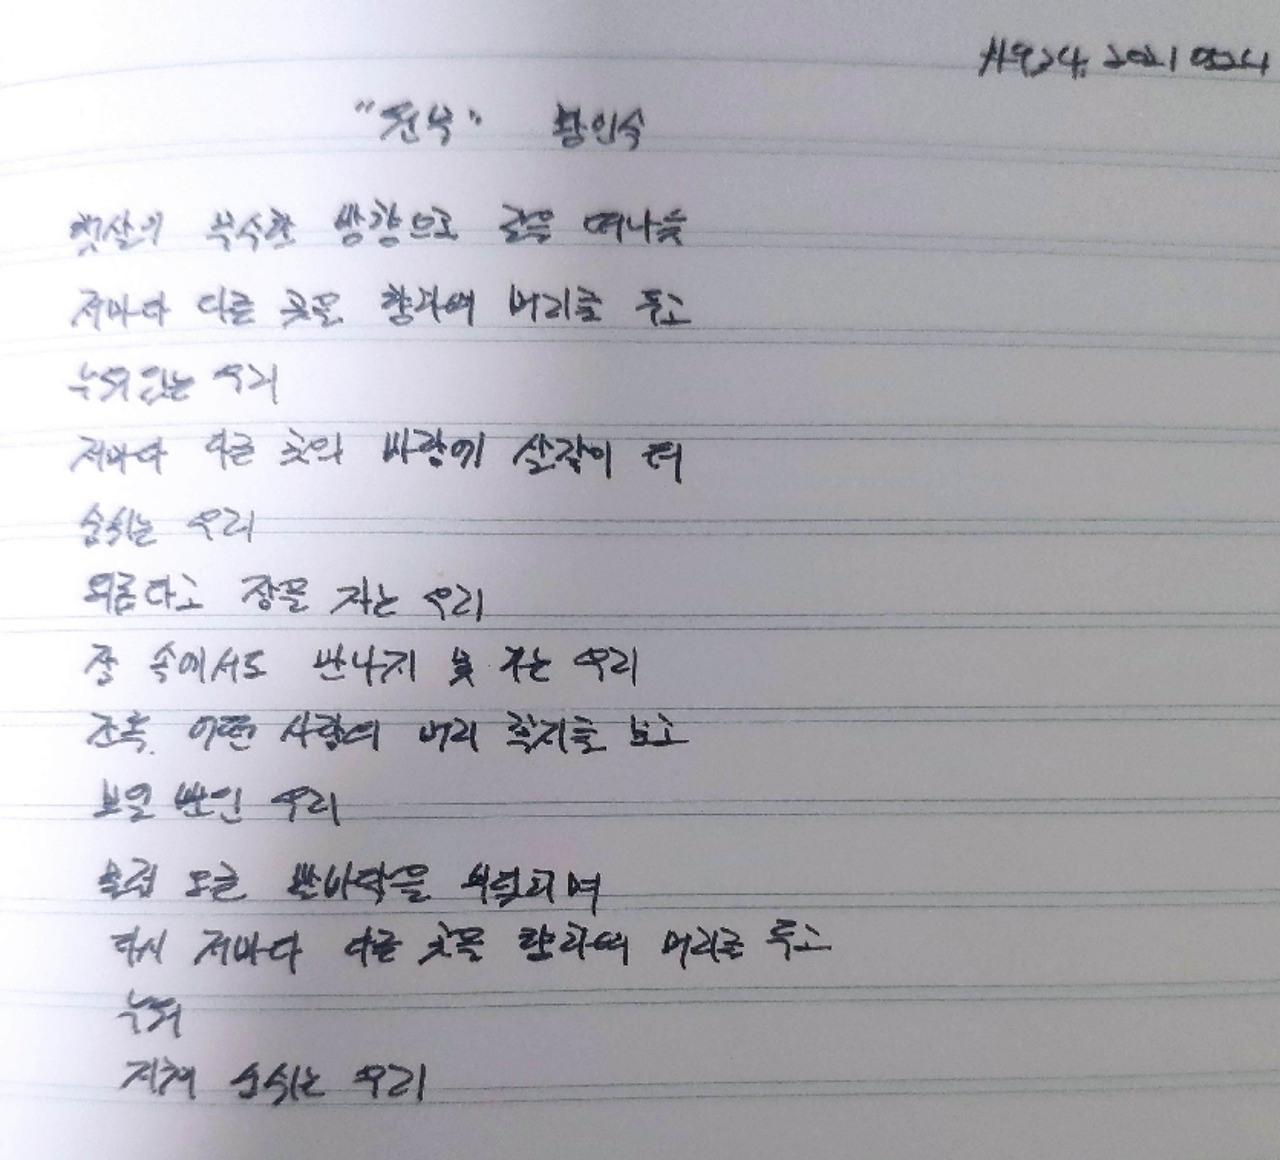 #924. 20210524
"전부" 황인숙
햇살의 무수한 방향으로 길을 떠나듯
저마다 다른 곳을 향하여 머리를 두고
누워있는 우리
저마다 다른 곳의 바람에 살갗이 터
숨쉬는 우리
외롭다고 잠을 자는 우리
잠 속에서도 만나지 못 하는 우리
간혹, 어떤 사람의 머리 꼭지를 보고
보일 뿐인 우리
슬쩍 도는 발바닥을 비벼대며
다시 저마다 다른 곳을 향하여 머리를 두고
누워
지쳐 숨쉬는 우리